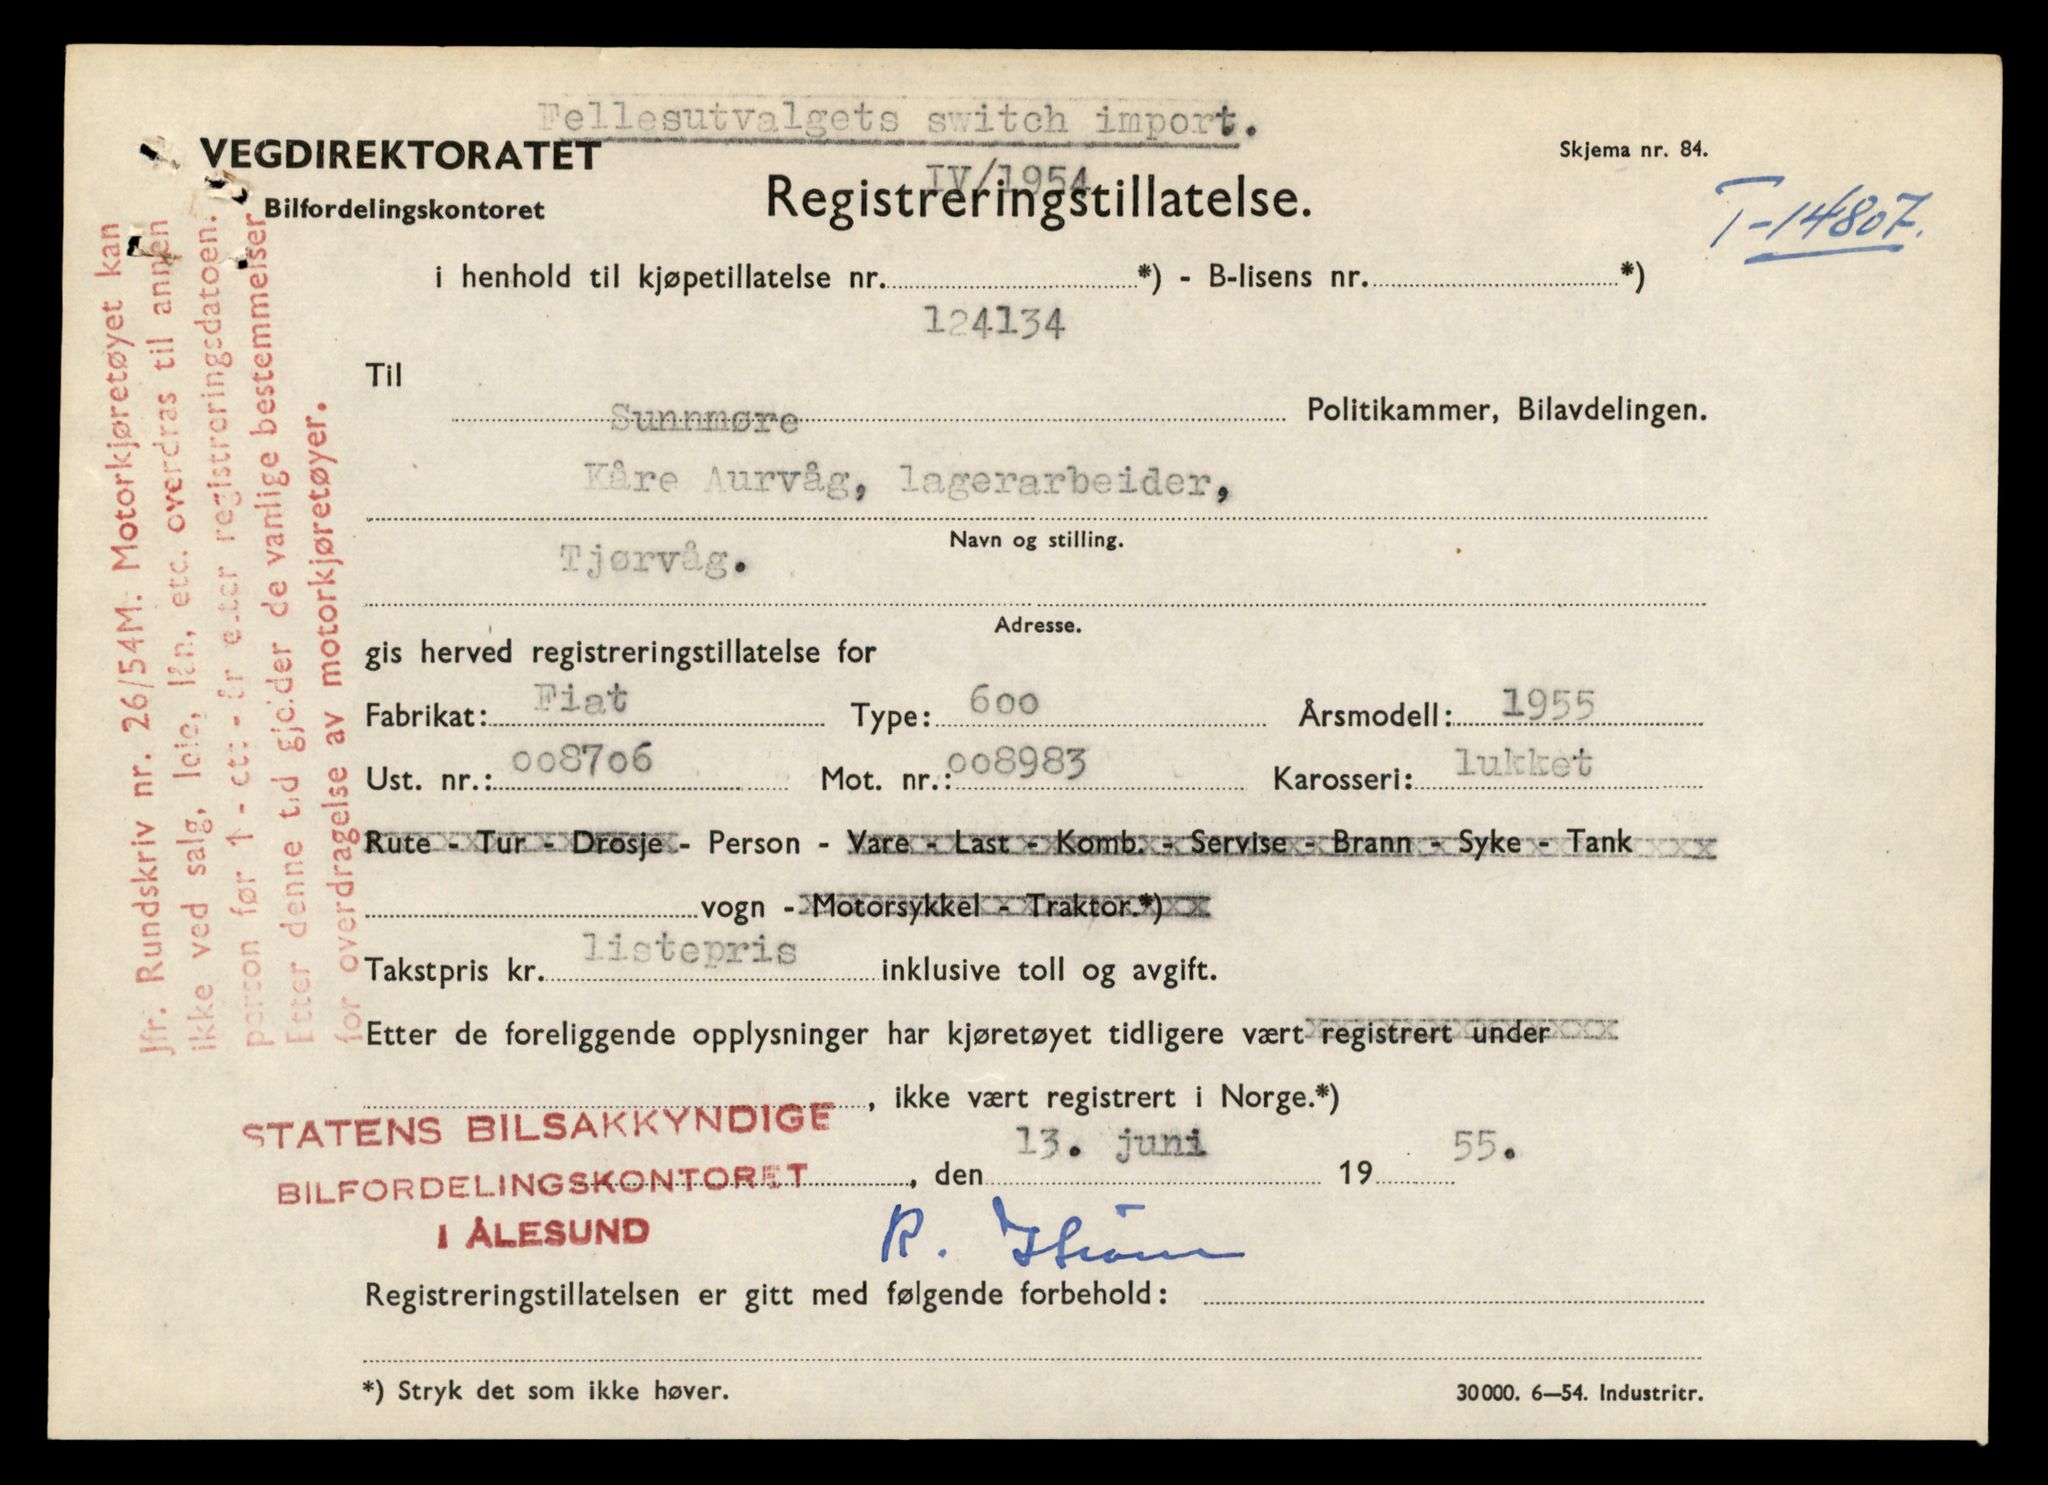 Fellesutvalgets switch import.
VEGDIREKTORATET
Skjema nr. 84.
IV/1954
Bilfordelingskontoret
Registreringstillatelse.
T-14807.
i henhold til kjøpetillatelse nr. *) - B-lisens nr. *)
124134
Til
Sunnmøre Politikammer, Bilavdelingen.
Kåre Aurvåg, lagerarbeider,
Navn og stilling.
Tjørvåg.
Adresse.
gis herved registreringstillatelse for
Fabrikat: Fiat Type: 600 Årsmodell: 1955
Ust. nr.: 008706 Mot. nr.: 008983 Karosseri: lukket
Rute - Tur - Drosje - Person - Vare - Last - Komb. - Servise - Brann - Syke - Tank
vogn - Motorsykkel - Traktor.*)
Takstpris kr. listepris inklusive toll og avgift.
Etter de foreliggende opplysninger har kjøretøyet tidligere vært registrert under
, ikke vært registrert i Norge.*)
STATENS BILSAKKYNDIGE
BILFORDELINGSKONTORET
I ÅLESUND
, den 13. juni 19 55.
R.
Registreringstillatelsen er gitt med følgende forbehold:
*) Stryk det som ikke høver.
30000. 6—54. Industritr.
Jfr. Rundskriv nr. 26/54M: Motorkjøretøyet kan
ikke ved salg, leie, lån, etc. overdras til annen
person før 1 - ett - år etter registreringsdatoen.
Etter denne tid gjelder de vanlige bestemmelser
for overdragelse av motorkjøretøyer.